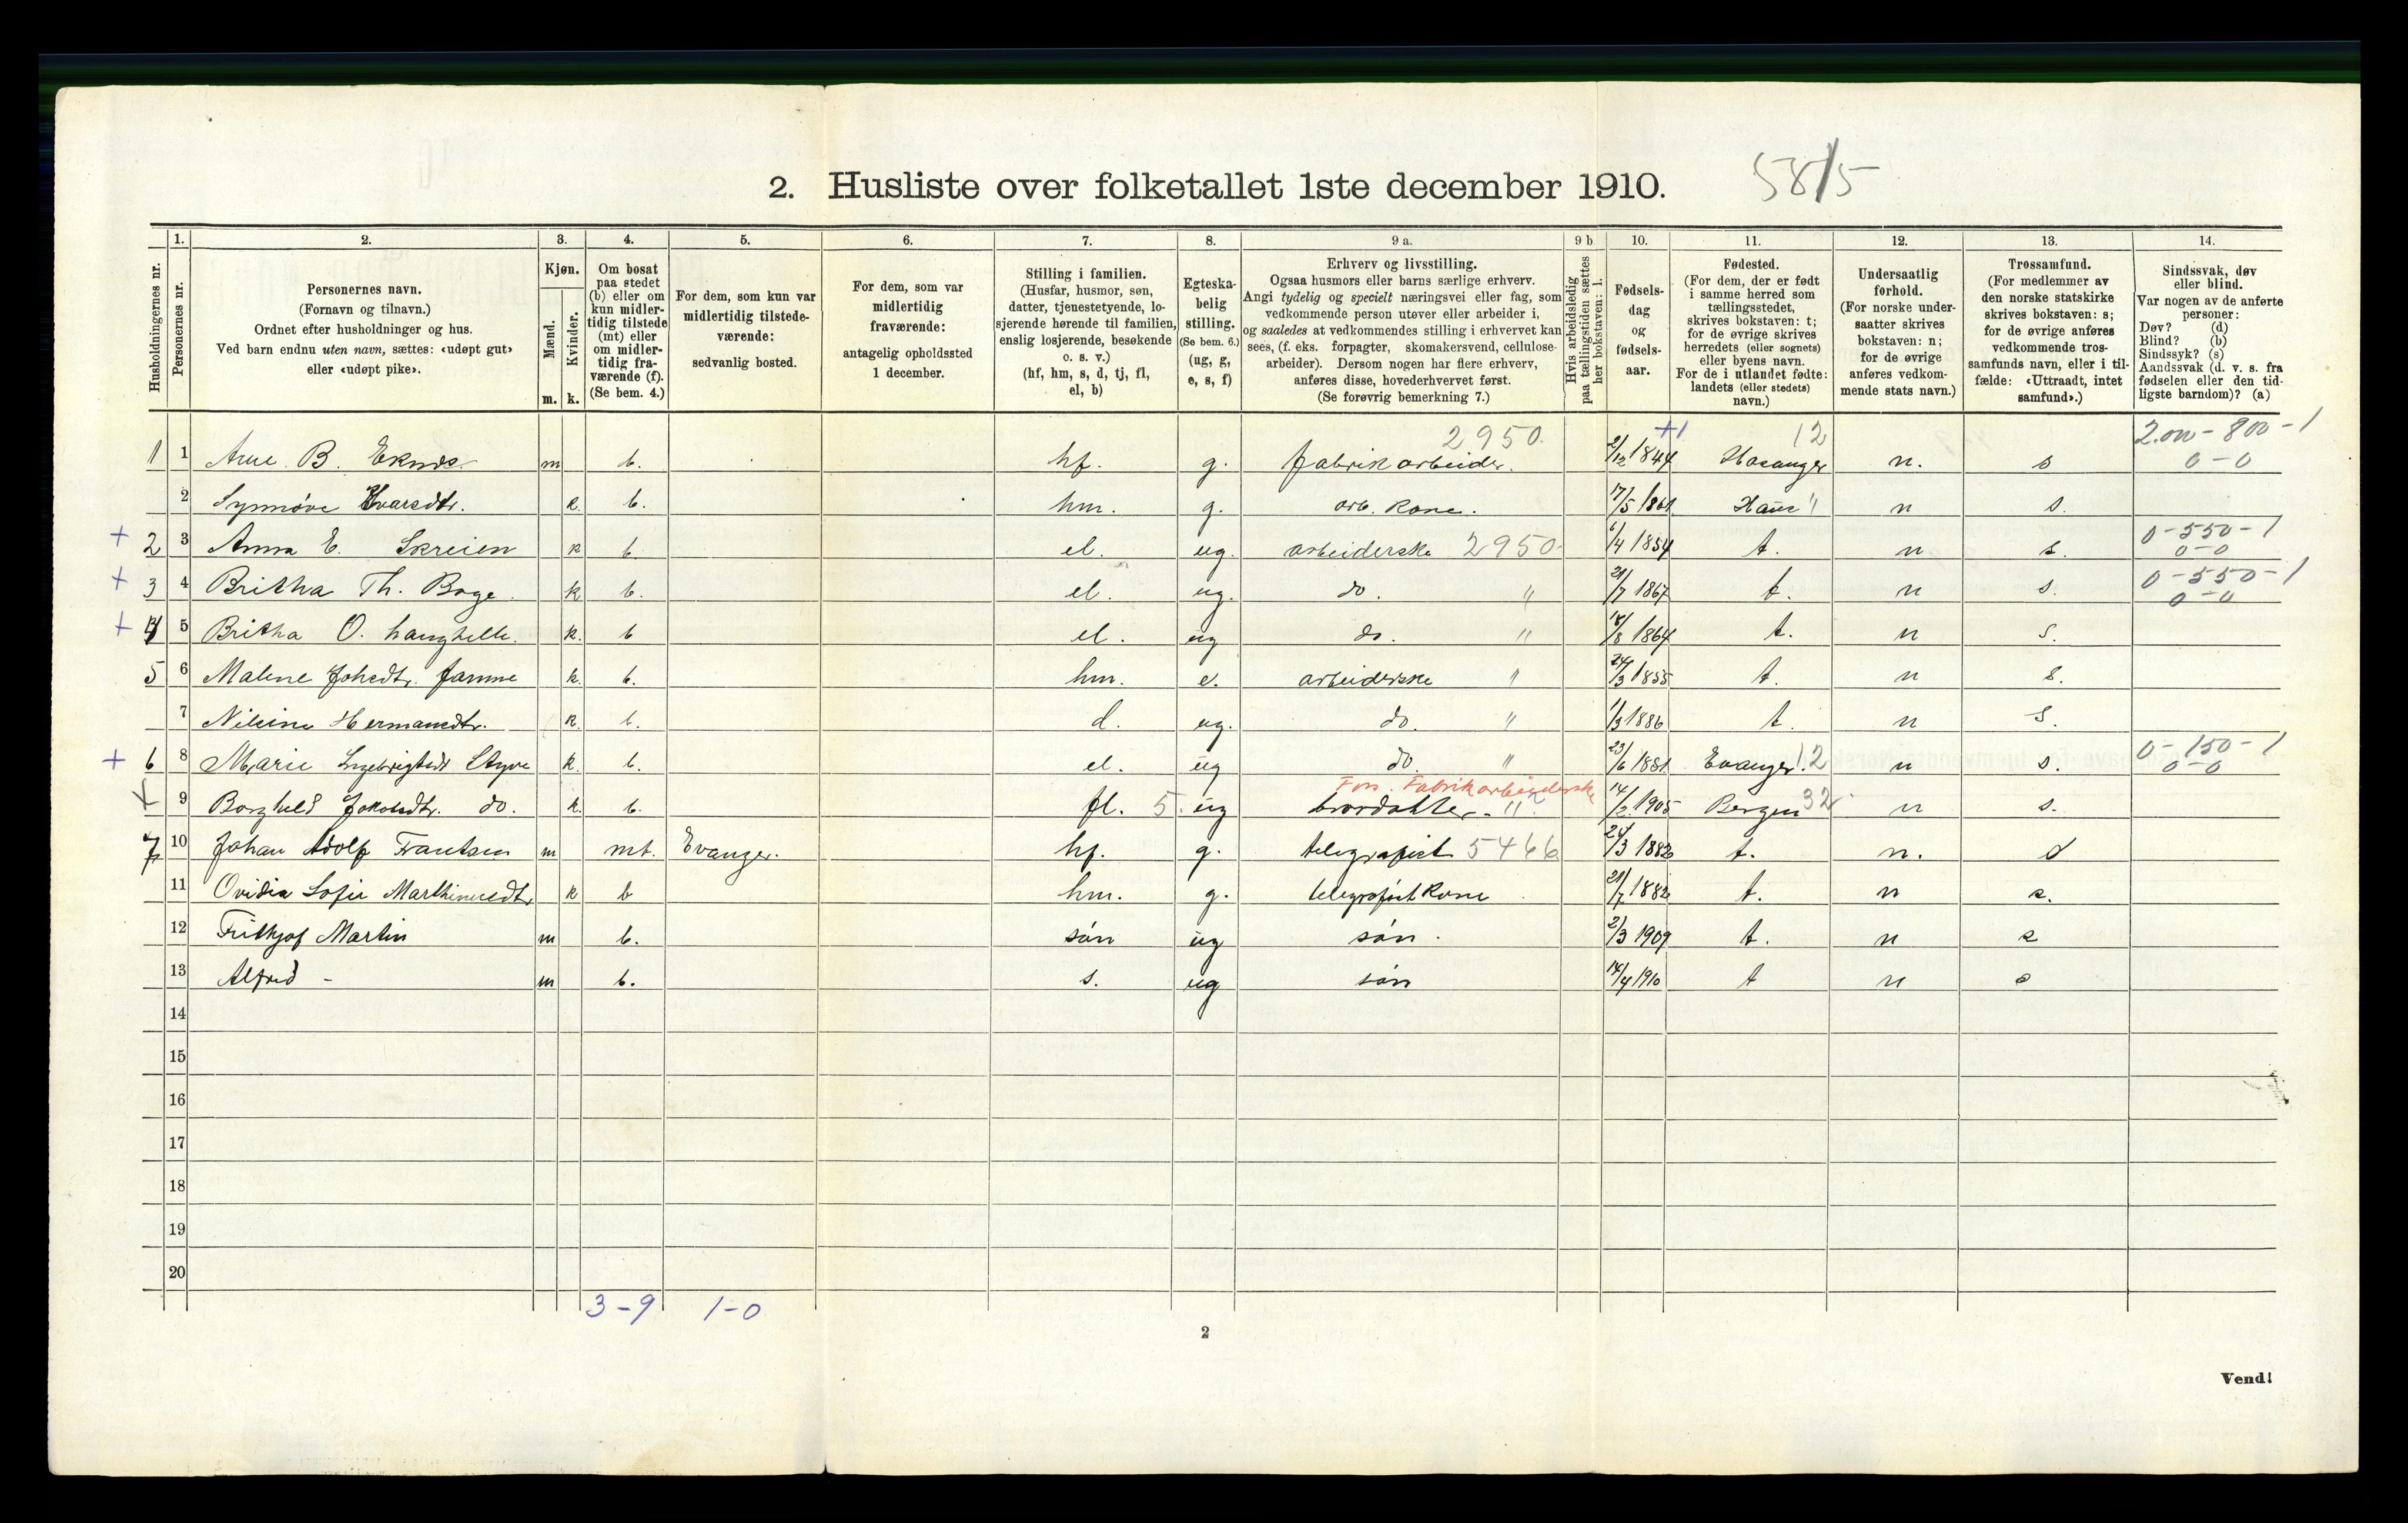 2. Husliste over folketallet 1ste december 1910. 58/5
Husholdningernes nr.
1. Personernes nr.
2. Personernes navn. (Fornavn og tilnavn.) Ordnet efter husholdninger og hus. Ved barn endnu uten navn, sættes: «udøpt gut» eller «udøpt pike».
3. Kjøn. Mænd. m. Kvinder. k.
4. Om bosat paa stedet (b) eller om kun midlertidig tilstede (mt) eller om midlertidig fraværende (f). (Se bem. 4.)
5. For dem, som kun var midlertidig tilstedeværende: sedvanlig bosted.
6. For dem, som var midlertidig fraværende: antagelig opholdssted 1 december.
7. Stilling i familien. (Husfar, husmor, søn, datter, tjenestetyende, losjerende hørende til familien, enslig losjerende, besøkende o. s. v.) (hf, hm, s, d, tj, fl, el, b)
8. Egteskabelig stilling. (Se bem. 6.) (ug, g, e, s, f)
9 a. Erhverv og livsstilling. Ogsaa husmors eller barns særlige erhverv. Angi tydelig og specielt næringsvei eller fag, som vedkommende person utøver eller arbeider i, og saaledes at vedkommendes stilling i erhvervet kan sees, (f. eks. forpagter, skomakersvend, cellulosearbeider). Dersom nogen har flere erhverv, anføres disse, hovederhvervet først. (Se forøvrig bemerkning 7.)
9 b. Hvis arbeidsledig paa tællingstiden sættes her bokstaven: l.
10. Fødselsdag og fødselsaar.
11. Fødested. (For dem, der er født i samme herred som tællingsstedet, skrives bokstaven: t; for de øvrige skrives herredets (eller sognets) eller byens navn. For de i utlandet fødte: landets (eller stedets) navn.)
12. Undersaatlig forhold. (For norske undersaatter skrives bokstaven: n; for de øvrige anføres vedkommende stats navn.)
13. Trossamfund. (For medlemmer av den norske statskirke skrives bokstaven: s; for de øvrige anføres vedkommende trossamfunds navn, eller i tilfælde: «Uttraadt, intet samfund».)
14. Sindssvak, døv eller blind. Var nogen av de anførte personer: Døv? (d) Blind? (b) Sindssyk? (s) Aandssvak (d. v. s. fra fødselen eller den tidligste barndom)? (a)
2950. +1 12 2.00 - 800 - 1
1 1 Arne B. Eknes m b. hf. g. fabrikarbeider. 2/12 1844 Hosanger n. s 0-0
2 Synnøve Ivarsdtr. k. b. hm. g. arb. kone. 17/5 1861 Haus " n s.
+ 2 3 Anna E. Skreien k b. el. ug. arbeiderske 2950 6/4 1854 t. n s. 0-550-1 0-0
+ 3 4 Britha Th. Boge. k b. el. ug. do. " 21/7 1867 t. n s. 0-550-1 0-0
+ 4 5 Britha O. Langhelle. k. b el. ug do. " 18/8 1864 t. n s.
5 6 Malene Johsdtr. Jamne k. b. hm. e. arbeiderske " 24/3 1855 t. n s.
7 Nilsine Hermansdtr. k. b. d. ug. do. " 1/3 1886 t. n s.
+ 6 8 Marie Ingebrigtsdt Styve k. b. el. ug do. " 23/6 1881. Evanger. 12 n s. 0-150-1 0-0
Fors. Fabrikarbeiderske
9 Borghild Jakobsdtr. do. k. b. fl. 5 ug brordatter - " 14/2 1905 Bergen 32 n s.
7 10 Johan Adolf Frantsen m mt. Evanger. hf. g. telegrafist 5466 24/3 1882 t. n. s
11 Ovidia Sofie Marthinusdtr k b hm. g. telegrafistkone 21/7 1882 t. n s.
12 Frithjof Martin m b. søn ug søn. 2/3 1909 t. n s
13 Alfred - m b. s. ug søn 14/4 1910 t n s
14
15
16
17
18
19
20
3-9 1-0
2
Vend!